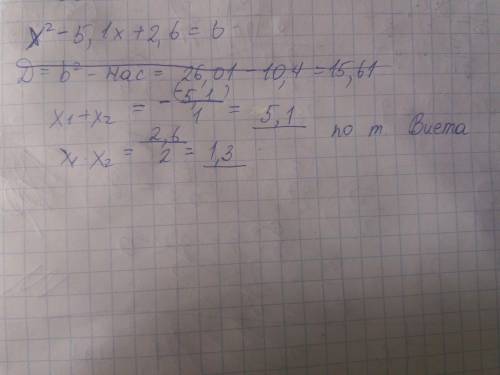 x² - 5,1x + 2,6 = 0
D = b² - 4ac = 26,01 - 10,4 = 15,61
x₁ + x₂ = -(-5,1)/1 = 5,1 по т Виета
x₁ x₂ = 2,6/2 = 1,3